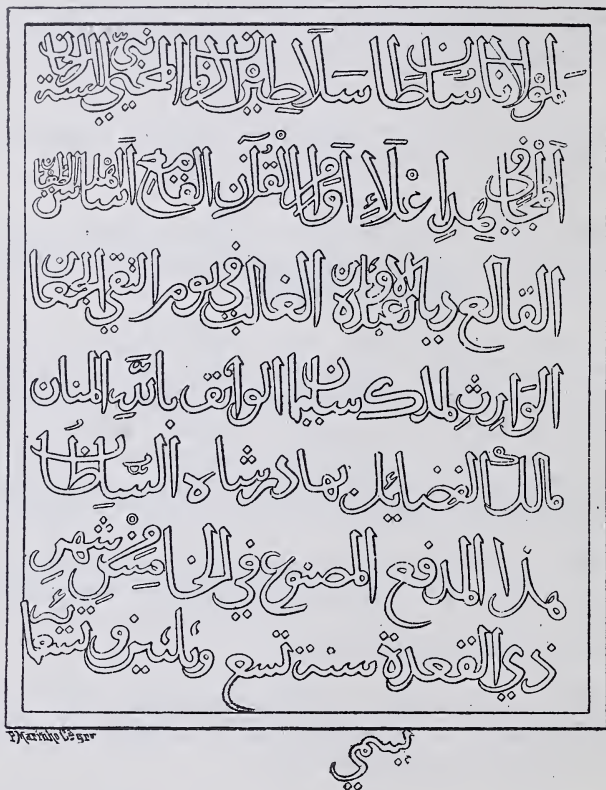 لمولانا سلطان سلاطين الزمان المحيي سنة نبي الرحمن
المجاهد في إعلاء أوامر القرآن القامع أساس أهل الطغيان
القالع ديار عبدة الاوثان الغالب في يوم التقي الجمعان
الوارث لملك سليمان الواثق بالله المنان
مالك الفضايل بهادر شاه السلطان
هذا المدفع المصنوع في الخامس من شهر
ذي القعدة سنة تسع وثلثين وتسعمائة
يسمي